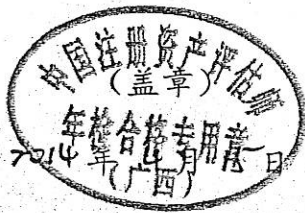 中国注册资产评估师
(盖章)
年检合格专用章
2014年4月 日
(广西)